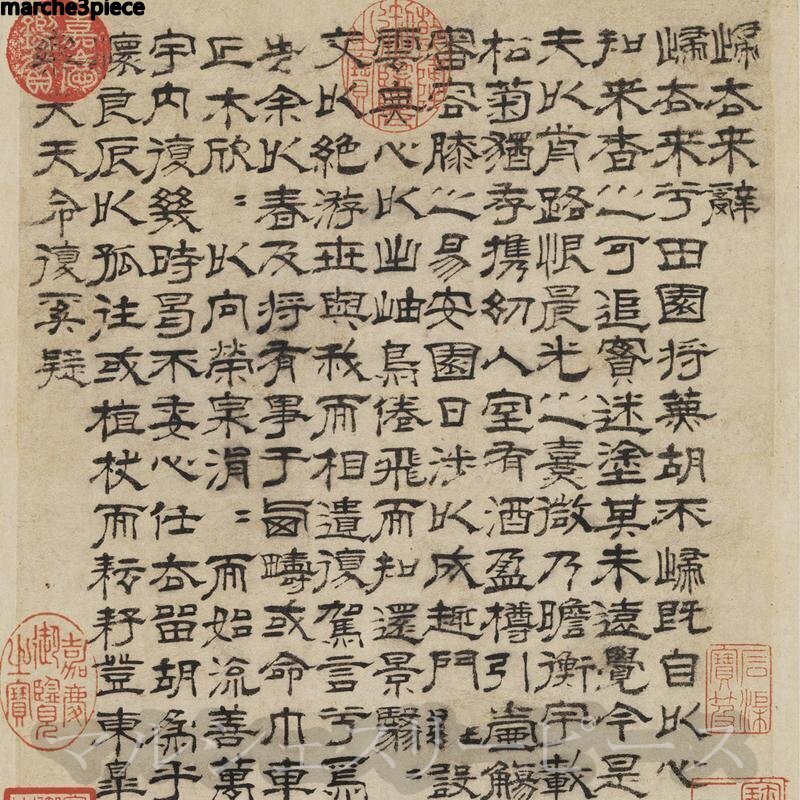 marche3piece
歸去来辭
歸去来兮田園将蕪胡不歸既自以心
知来者之可追實迷塗其未遠覺今是
夫以前路恨晨光之熹微乃瞻衡宇載
松菊猶存携幼入室有酒盈樽引壺觴
審容膝之易安園日涉以成趣門雖設
雲無心以出岫鳥倦飛而知還景翳
交以絶游世與我而相遺復駕言兮焉
告余以春及将有事于西疇或命巾車
丘木欣〻以向榮泉涓〻而始流善萬
宇内復幾時曷不委心任去留胡為乎
懷良辰以孤往或植杖而耘耔登東皋
樂夫天命復奚疑
嘉慶御覽之寶
マルシェスリーピース